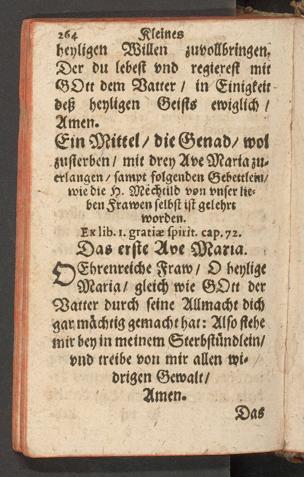 264 Kleines
heyligen Willen zuvollbringen.
Der du lebest vnd regierest mit
GOtt dem Vatter / in Einigkeit
deß heyligen Geists ewiglich /
Amen.
Ein Mittel / die Genad / wol
zusterben / mit drey Ave Maria zu-
erlangen / sampt folgenden Gebettlein /
wie die H. Mechtild von vnser lie-
ben Frawen selbst ist gelehrt
worden.
Ex lib. 1. gratiæ spirit. cap. 72.
Das erste Ave Maria.
O Ehrenreiche Fraw / O heylige
Maria / gleich wie GOtt der
Vatter durch seine Allmacht dich
gar mächtig gemacht hat: Also stehe
mir bey in meinem Sterbstündlein /
vnd treibe von mir allen wi-
drigen Gewalt /
Amen.
Das